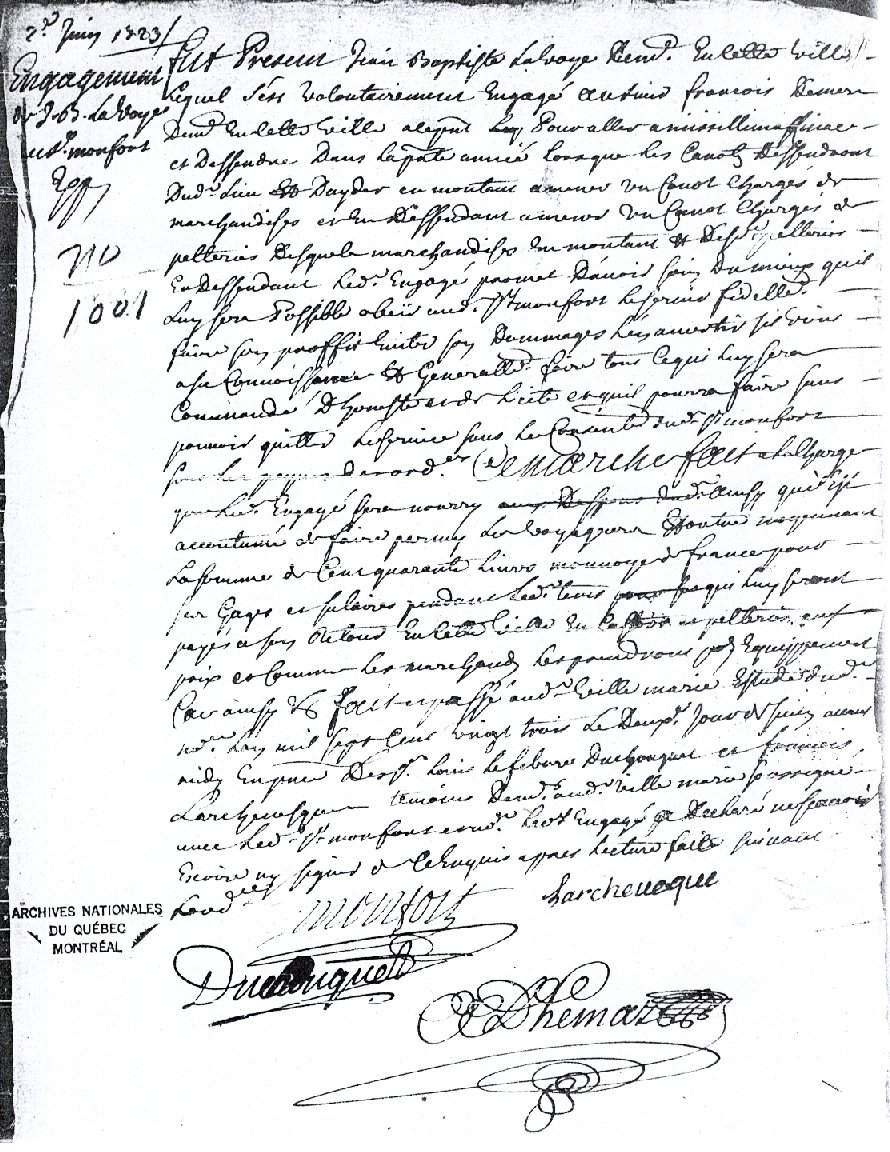 2e. Juin 1723
Engagement
de J. B. La Voye
au Sr. monfort
Exp
No
1001
fut Present Jean Baptiste La Voye Demt. En cette Ville
Lequel s'est Volontairement Engagé au sieur francois
Demt. En cette Ville acept. Luy Pour aller a missillimaquinac
et Dessendre Dans la pnte année Lorsque les Canots Dessendront
Dud. Lieu & D'ayder en montant amener un Canot Chargés de
marchandises et En Dessendant amener un Canot Chargés de
pelleries Desquels marchandises En montant & Desd. pelleries
En Dessendant Led. Engagé promet D'avoir soin Du mieux quil
Luy sera Possible obeir aud. Sr monfort Le servir fidellemt.
faire son proffit Eviter son Dommages L'en avertir s'il vient
a sa Connoissance & Generallemt. faire tous Ce qui Luy sera
Commandé D'honeste et de Licite et quil pourra faire sans
pouvoir quitter Le service sans Le Consentemt. dud. Sr monfort
sous les peynes de nos ord.ces Ce marché fait a la Charge
que Led. Engagé sera nourry ainsy qu'il est
accoutumé de faire parmy Les Voyageurs & outre moyennant
La somme de Cent quarante Livres monnoye de france pour
ses Gages et salaires pendant Led. tems qui Luy seront
payés a son Retour En cette Ville En Castors et pelleries aux
prix et Comme Les marchands Les prendront pr. Equippement
Car ainsy &c fait et passé aud. Ville marie Estude dud.
Nore. Lan mil sept Cent vingt trois Le Deuxe. Jour de Juin avant
midy En pnce Des Srs. Louis Lefebvre Duchouquet et francois
Larchevesque temoins Demt. aud. Ville marie soussignés
avec Led. Sr monfort et nd. Nore. Led. Engagé a Declaré ne scavoir
Ecrire ny signer de Ce Enquis apres Lecture faite suivant
Lord.ce
monfort
Larcheveque
Duchouquet
Dhemar
ARCHIVES NATIONALES
DU QUÉBEC
MONTRÉAL